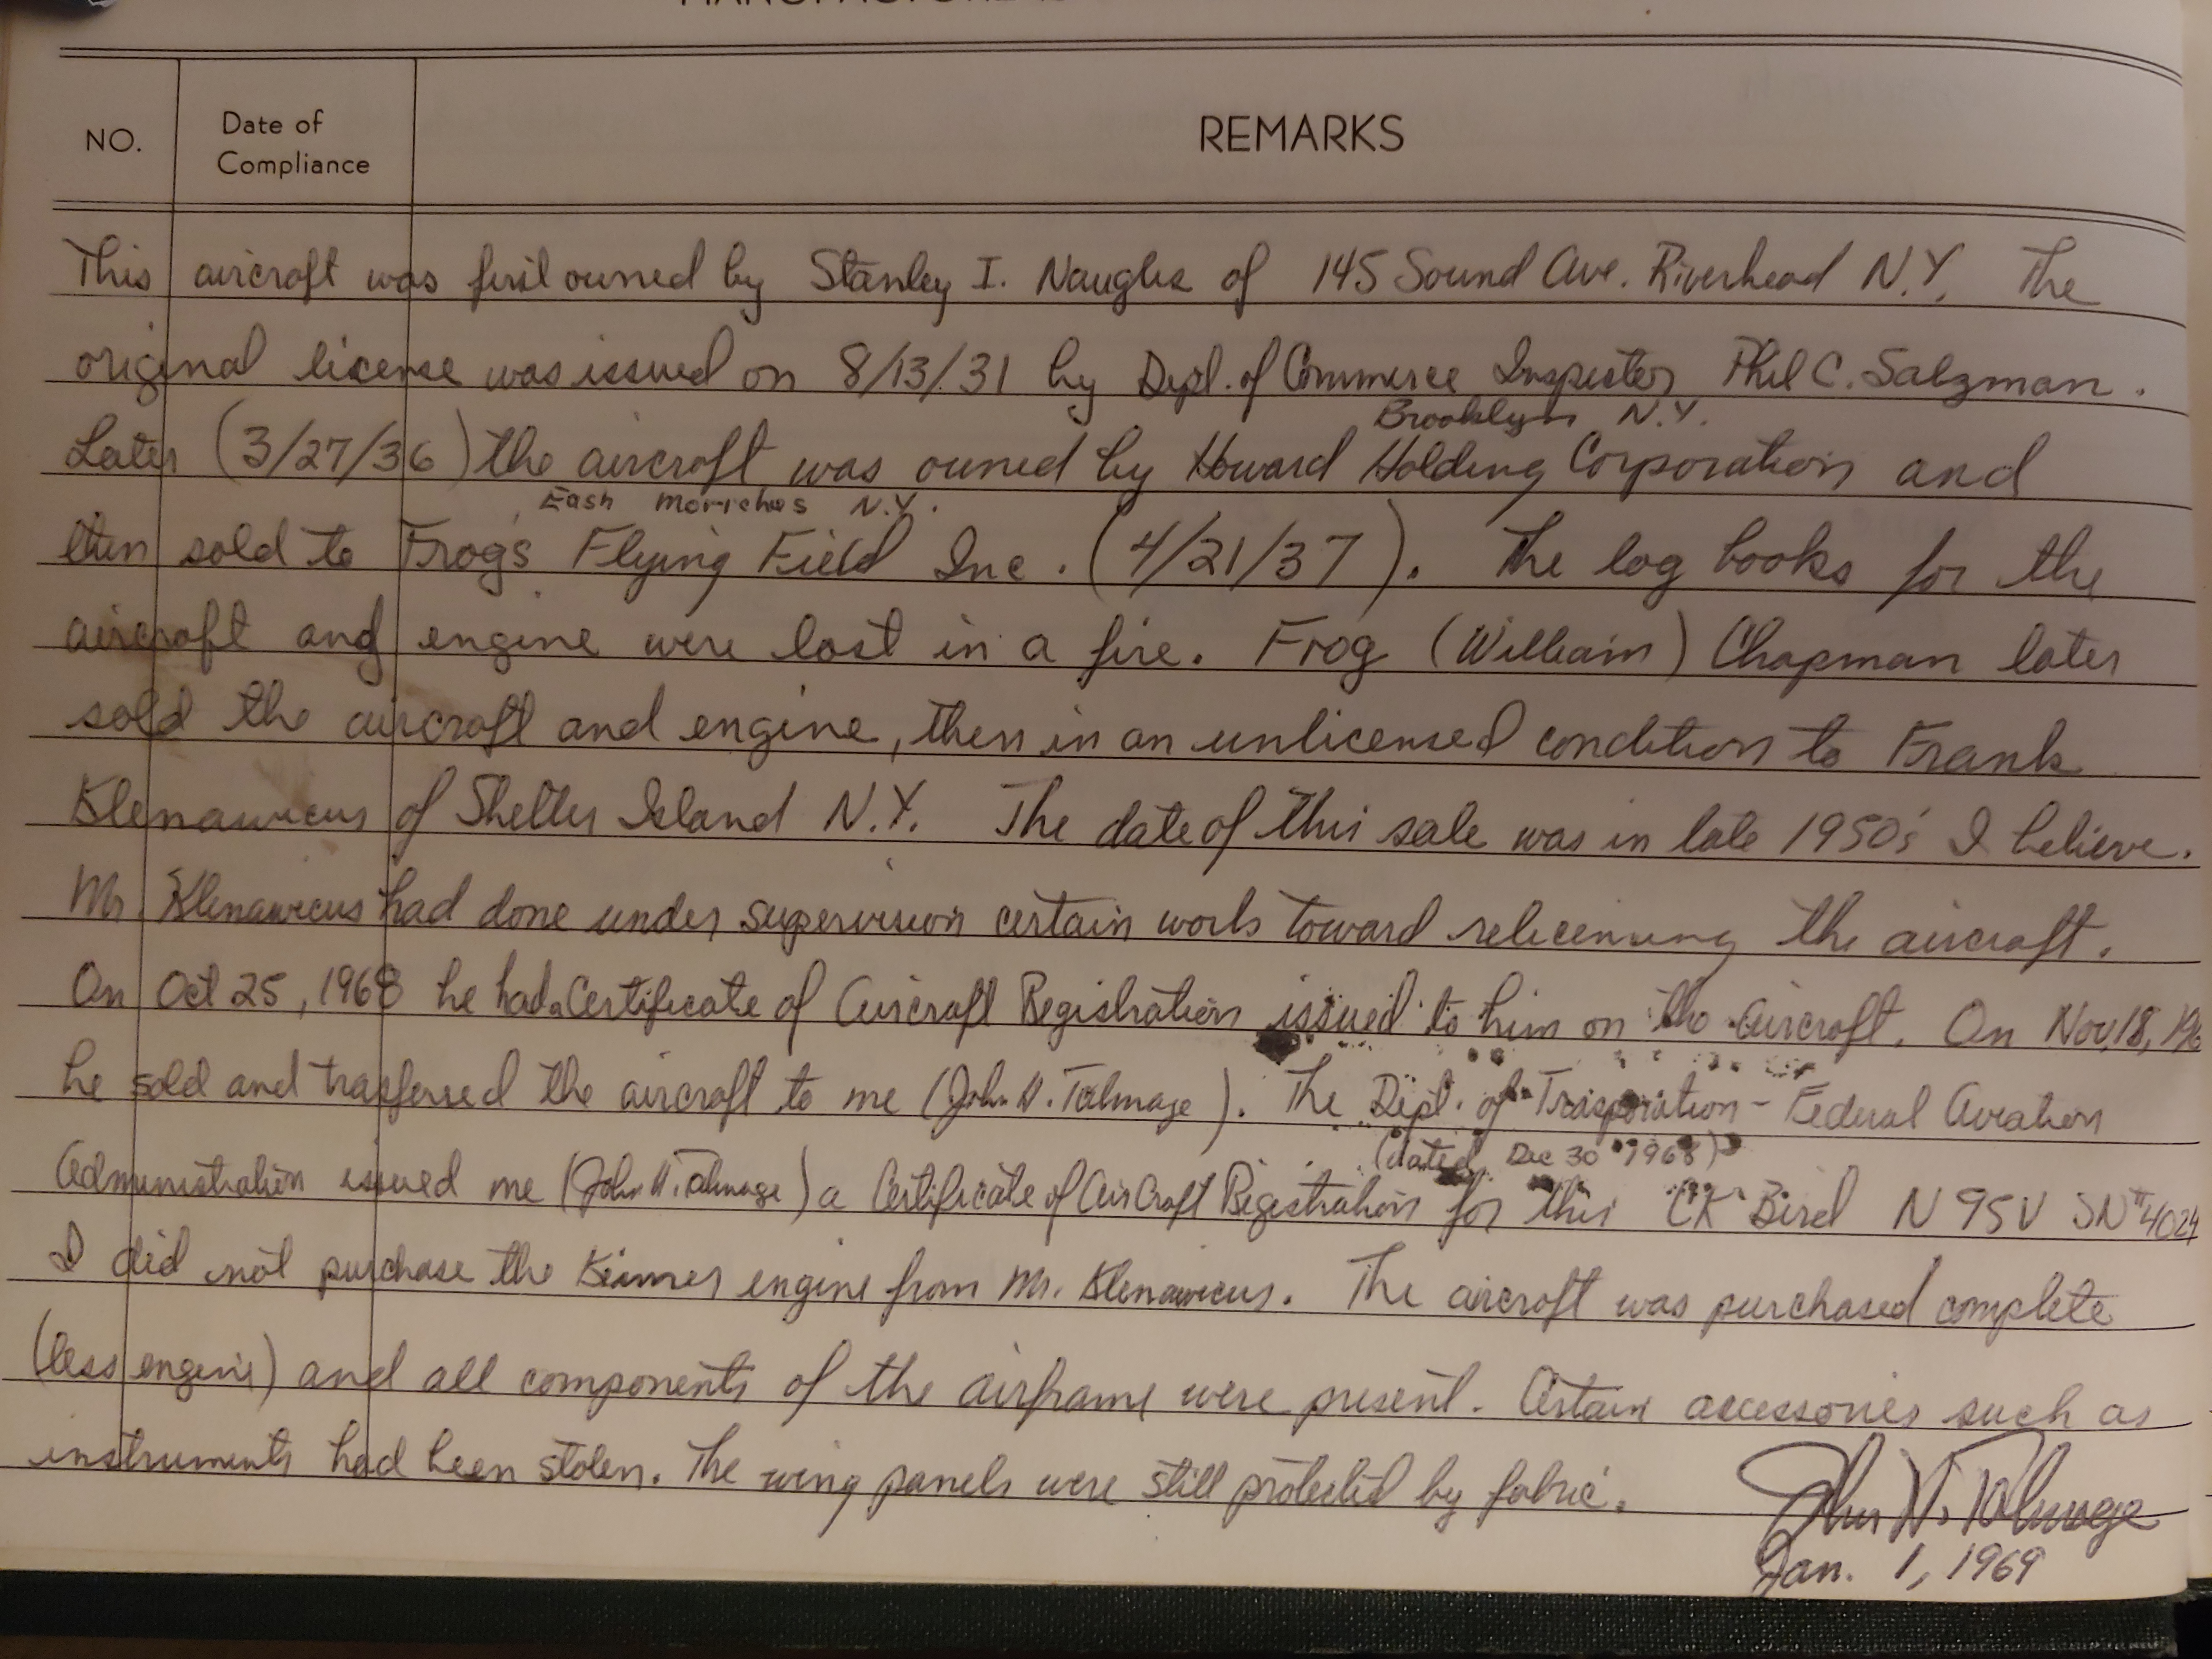 NO.
Date of
Compliance
REMARKS
This aircraft was first owned by Stanley I. Naugles of 145 Sound Ave. Riverhead N.Y. The
original license was issued on 8/13/31 by Dept. of Commerce Inspector Phil C. Salzman.
Brooklyn N.Y.
Later (3/27/36) the aircraft was owned by Howard Holding Corporation and
East Moriches N.Y.
then sold to Frogs Flying Field Inc. (4/21/37). The log books for the
aircraft and engine were lost in a fire. Frog (William) Chapman later
sold the aircraft and engine, then in an unlicensed condition to Frank
Klenawicus of Shelter Island N.Y. The date of this sale was in late 1950's I believe.
Mr. Klenawicus had done under supervision certain work toward relicensing the aircraft.
On Oct 25, 1968 he had a Certificate of Aircraft Registration issued to him on the aircraft. On Nov, 18, 196
he sold and trasferred the aircraft to me (John H. Talmage). The Dept. of Trasporation - Federal Aviation
(dated Dec 30 1968)
Administration issued me (John H. Talmage) a Certificate of AirCraft Registration for this CK Bird N 95V SN#4024
I did not purchase the Kinner engine from Mr. Klenawicus. The aircraft was purchased complete
(less engine) and all components of the airframe were present. Certain accessories such as
instruments had been stolen. The wing panels were still protected by fabric.
John H. Talmage
Jan. 1, 1969